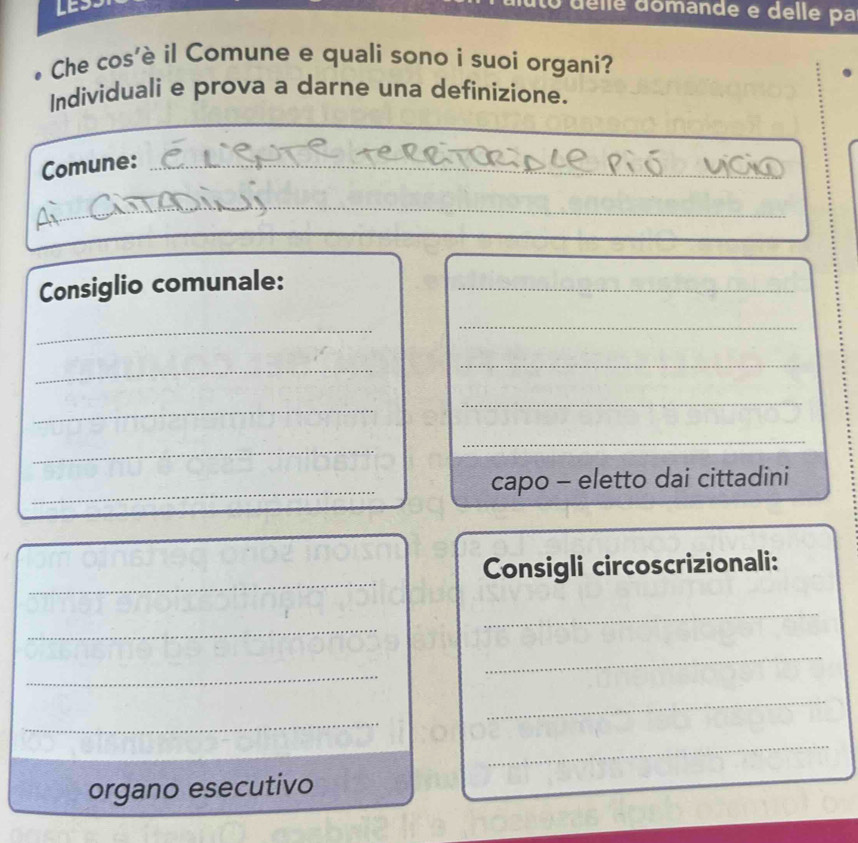 delle domande e delle pa
• Che cos'è il Comune e quali sono i suoi organi?
Individuali e prova a darne una definizione.
Comune: È l'ente territoriale più vicino
Ai cittadini
Consiglio comunale:
capo – eletto dai cittadini
Consigli circoscrizionali:
organo esecutivo